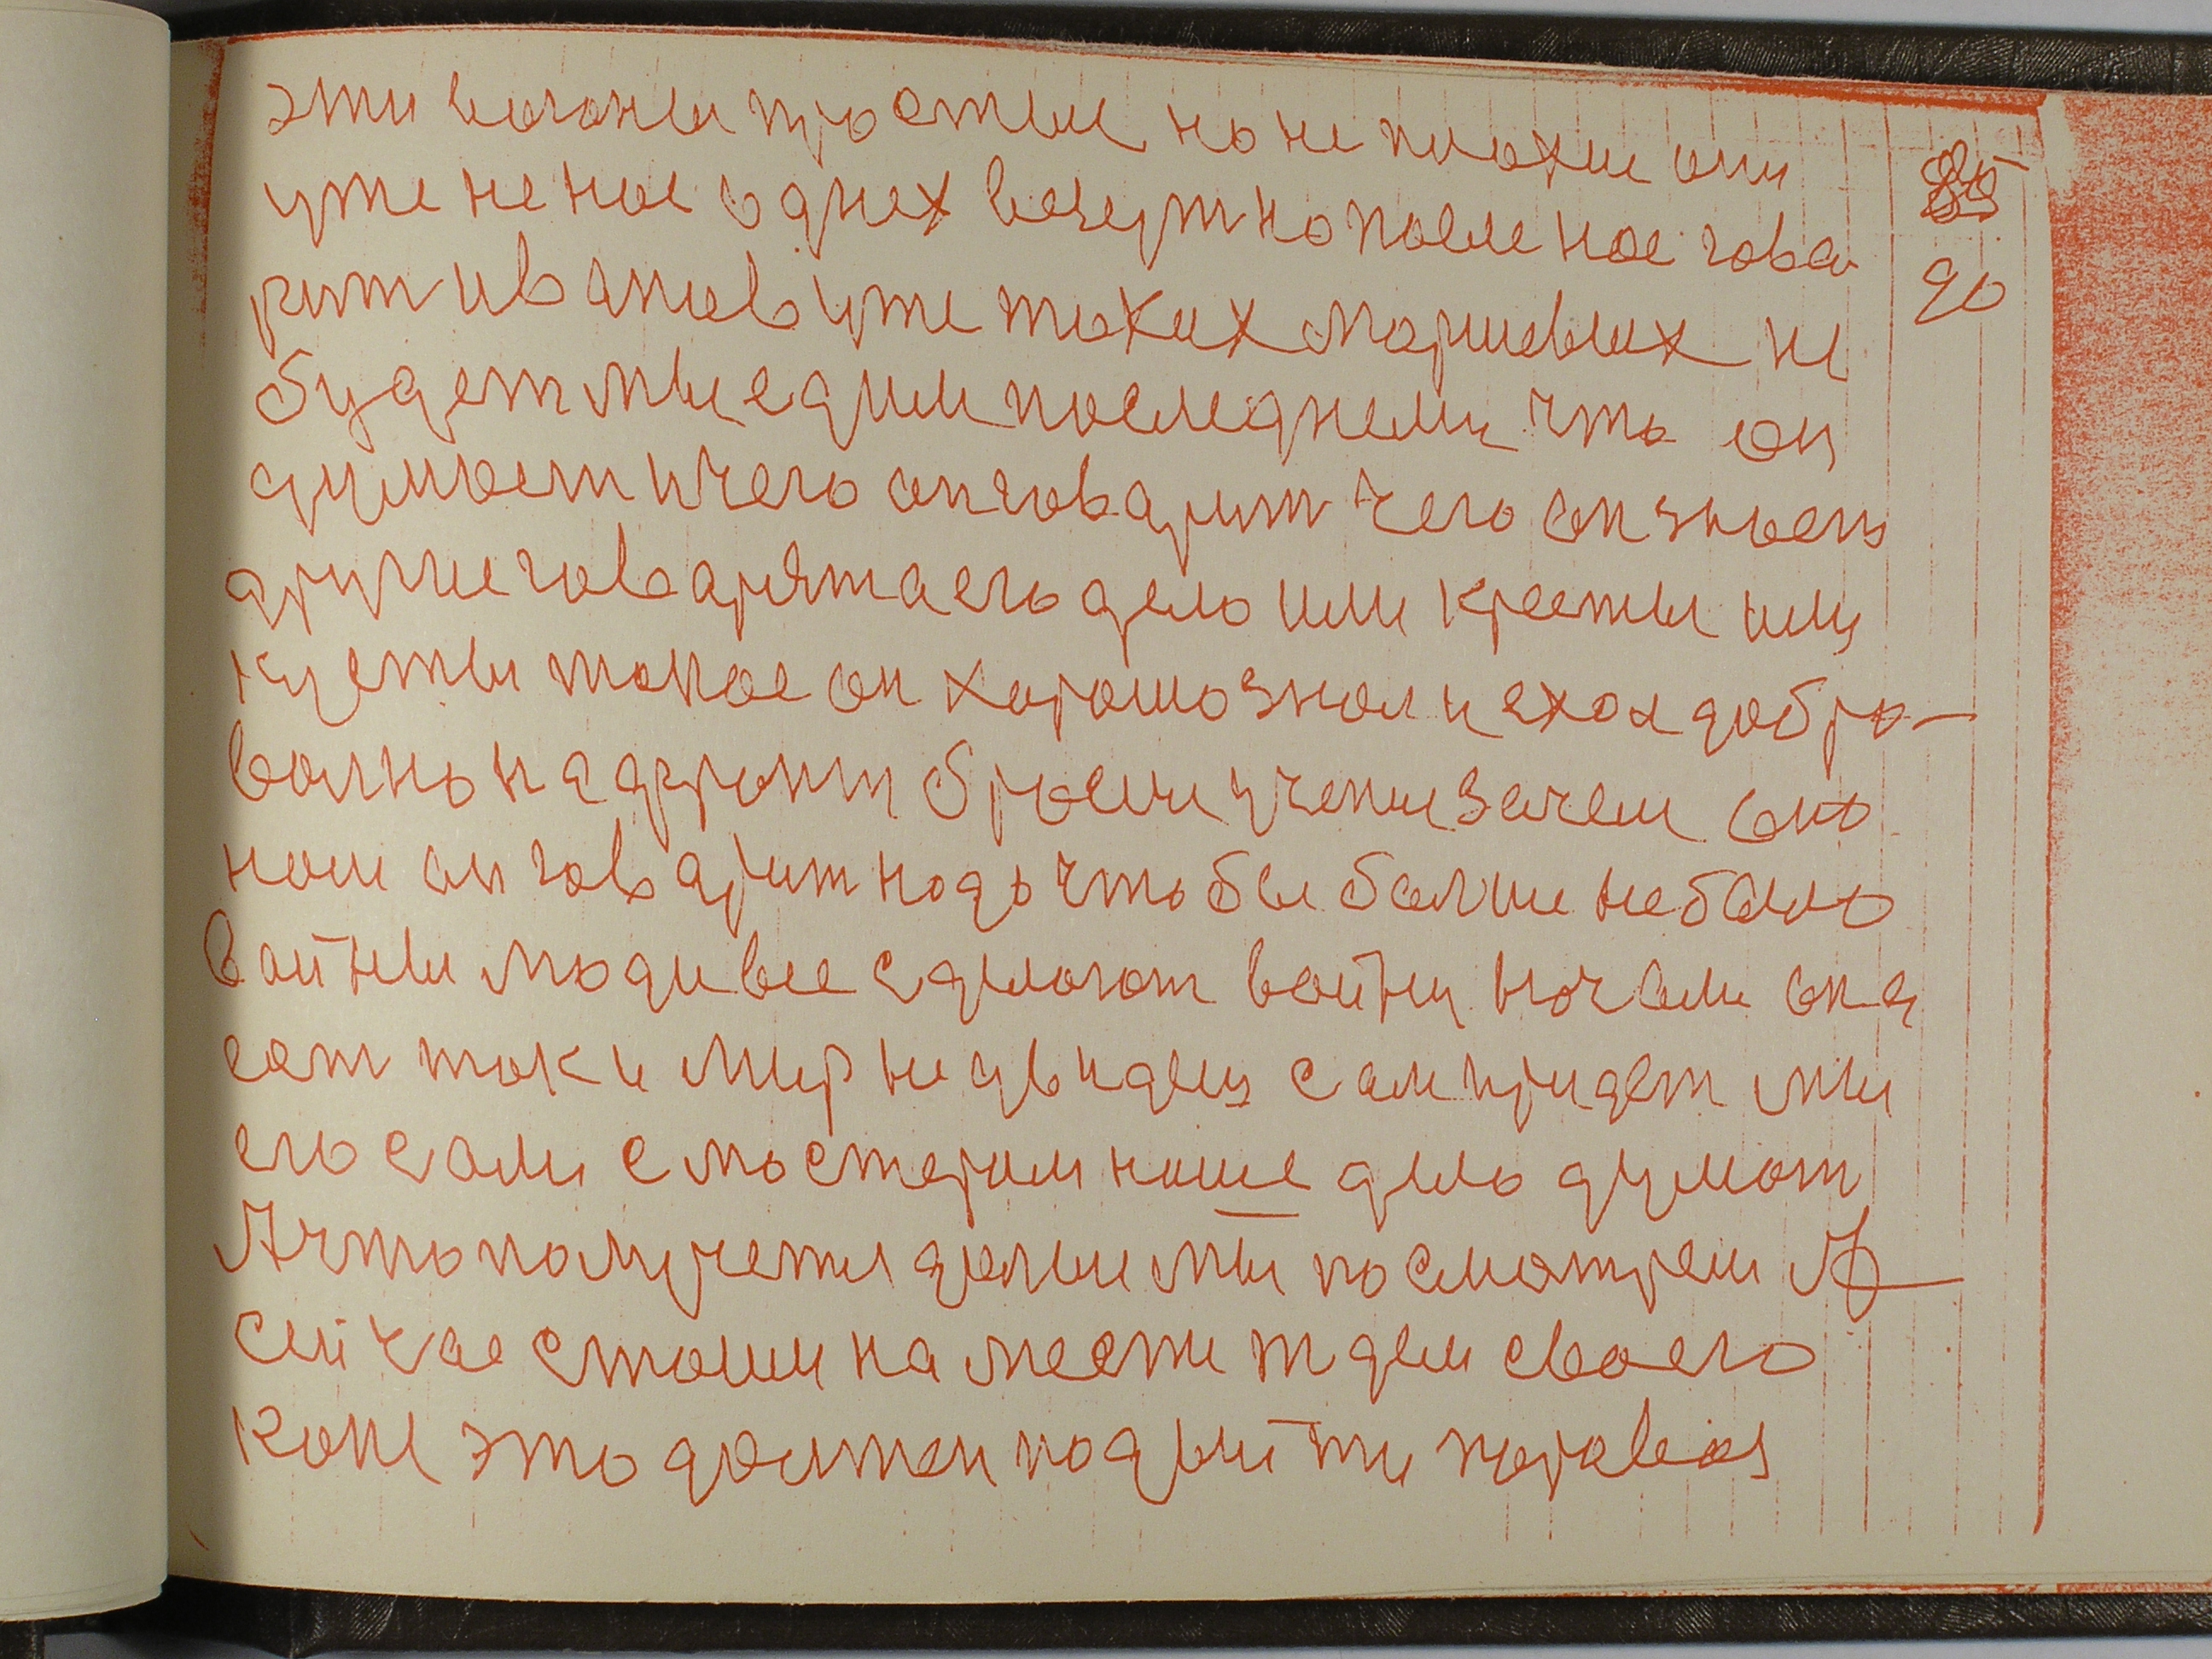 эти вагоны простые но не плохие они
уже не нас одних везут но после нас гова
рит иванов уже таких маршевых не
будет мы едим последнеми что он
думает и чего он говарит чего он знает
другие говарят а его дело или кресты или
кусты такое он хорошо знал и ехал добро-
волно на фронт бросил учение зачем оно
нам он говарит надо чтобы болше небыло
войны люди все сделают войну начали она
ест так и мир не увидеш сам придет мы
его сами смостерим наше дело думат
А что получетия далше мы посмотрем А
сейчас стоим на месте ждем своего
коне это должен подыйти паровоз
85
90